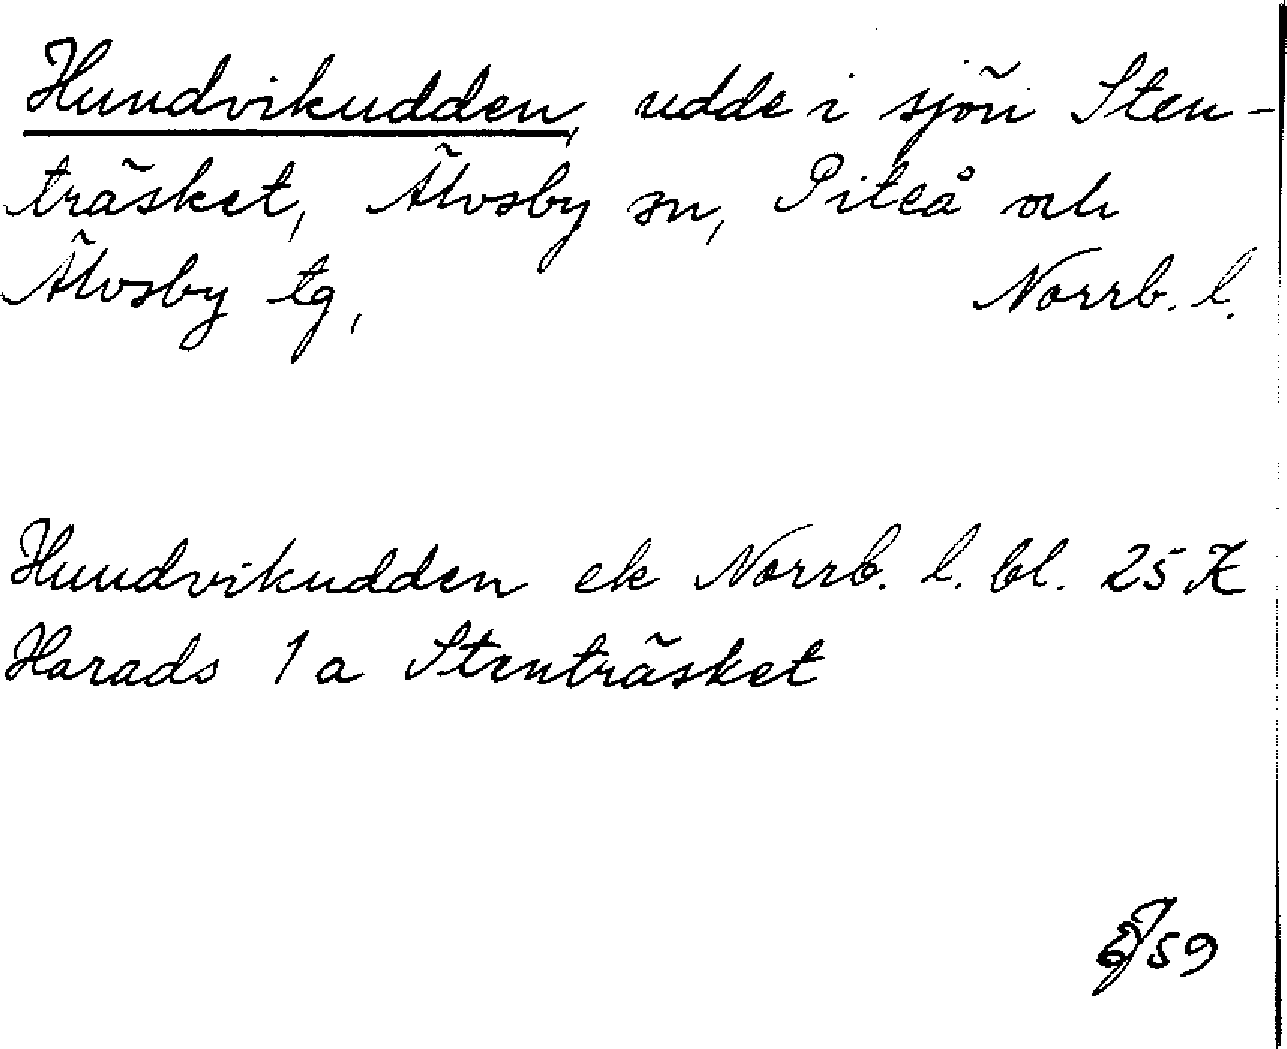 Hundvikudden, udde i sjön Sten-
träsket, Älvsby sn, Piteå och
Älvsby tg, Norrb. l.
Hundvikudden ek Norrb. l. bl. 25 K
Harads 1 a Stenträsket
/59